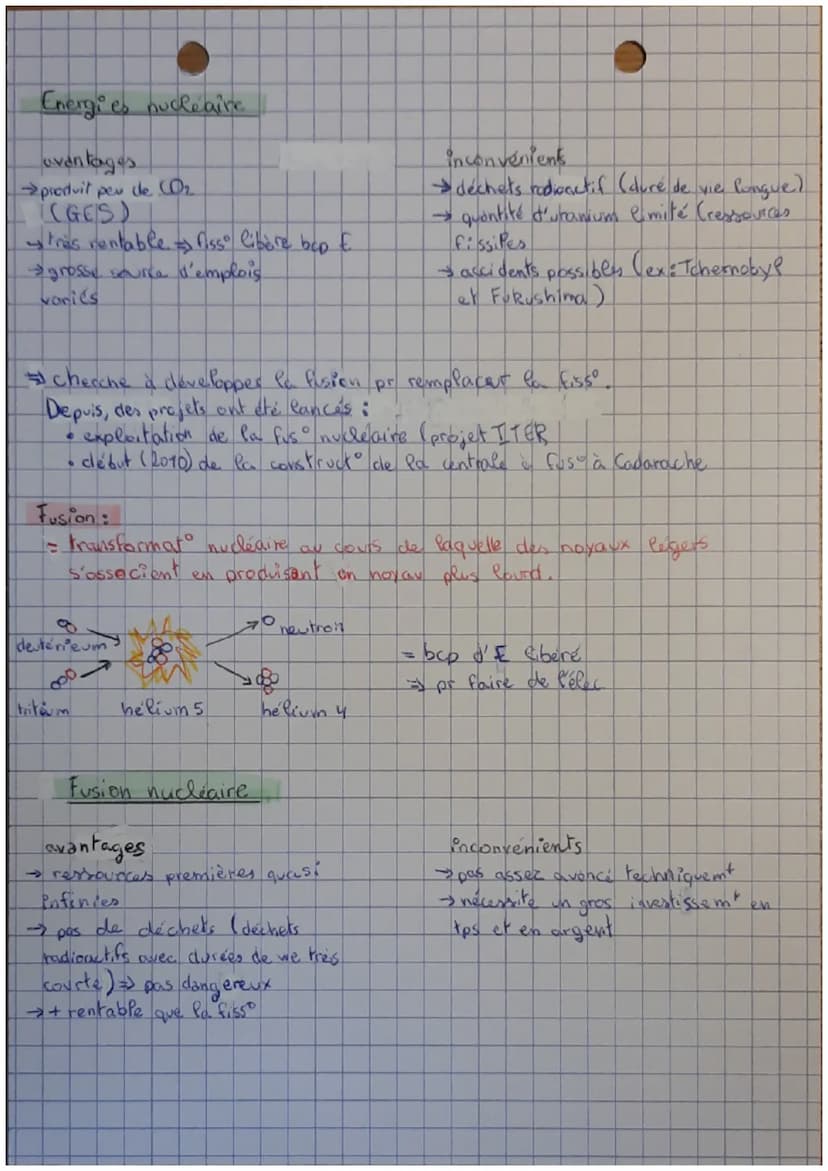 Energies nucléaire
avantages
→ produit peu de CO2
(GES)
→ très rentable ⇒ fiss° libère bcp E
→ grosse source d'emplois
variés
inconvénients
→ déchets radioactif (duré de vie longue)
→ quantité d'uranium limité (ressources
fissiles
→ accidents possibles (ex: Tchernobyl
et Fukushima)
⇒ cherche à développer la fusion pr remplacer la fiss°.
Depuis, des projets ont été lancés :
• exploitation de la fus° nucléaire (projet ITER
• début (2010) de la construct° de la centrale à fus° à Cadarache
Fusion :
= transformat° nucléaire au cours de laquelle des noyaux légers
s'associent en produisant un noyau plus lourd.
neutron
deutérieum
= bcp d'E libéré
⇒ pr faire de l'élec
tritium hélium 5 hélium 4
Fusion nucléaire
avantages
→ ressources premières quasi
infinies
→ pas de déchets (déchets
radioactifs avec durées de vie très
courte) ⇒ pas dangereux
→ + rentable que la fiss°
inconvénients
→ pas assez avancé techniquemt
→ nécessite un gros investissemt en
tps et en argent